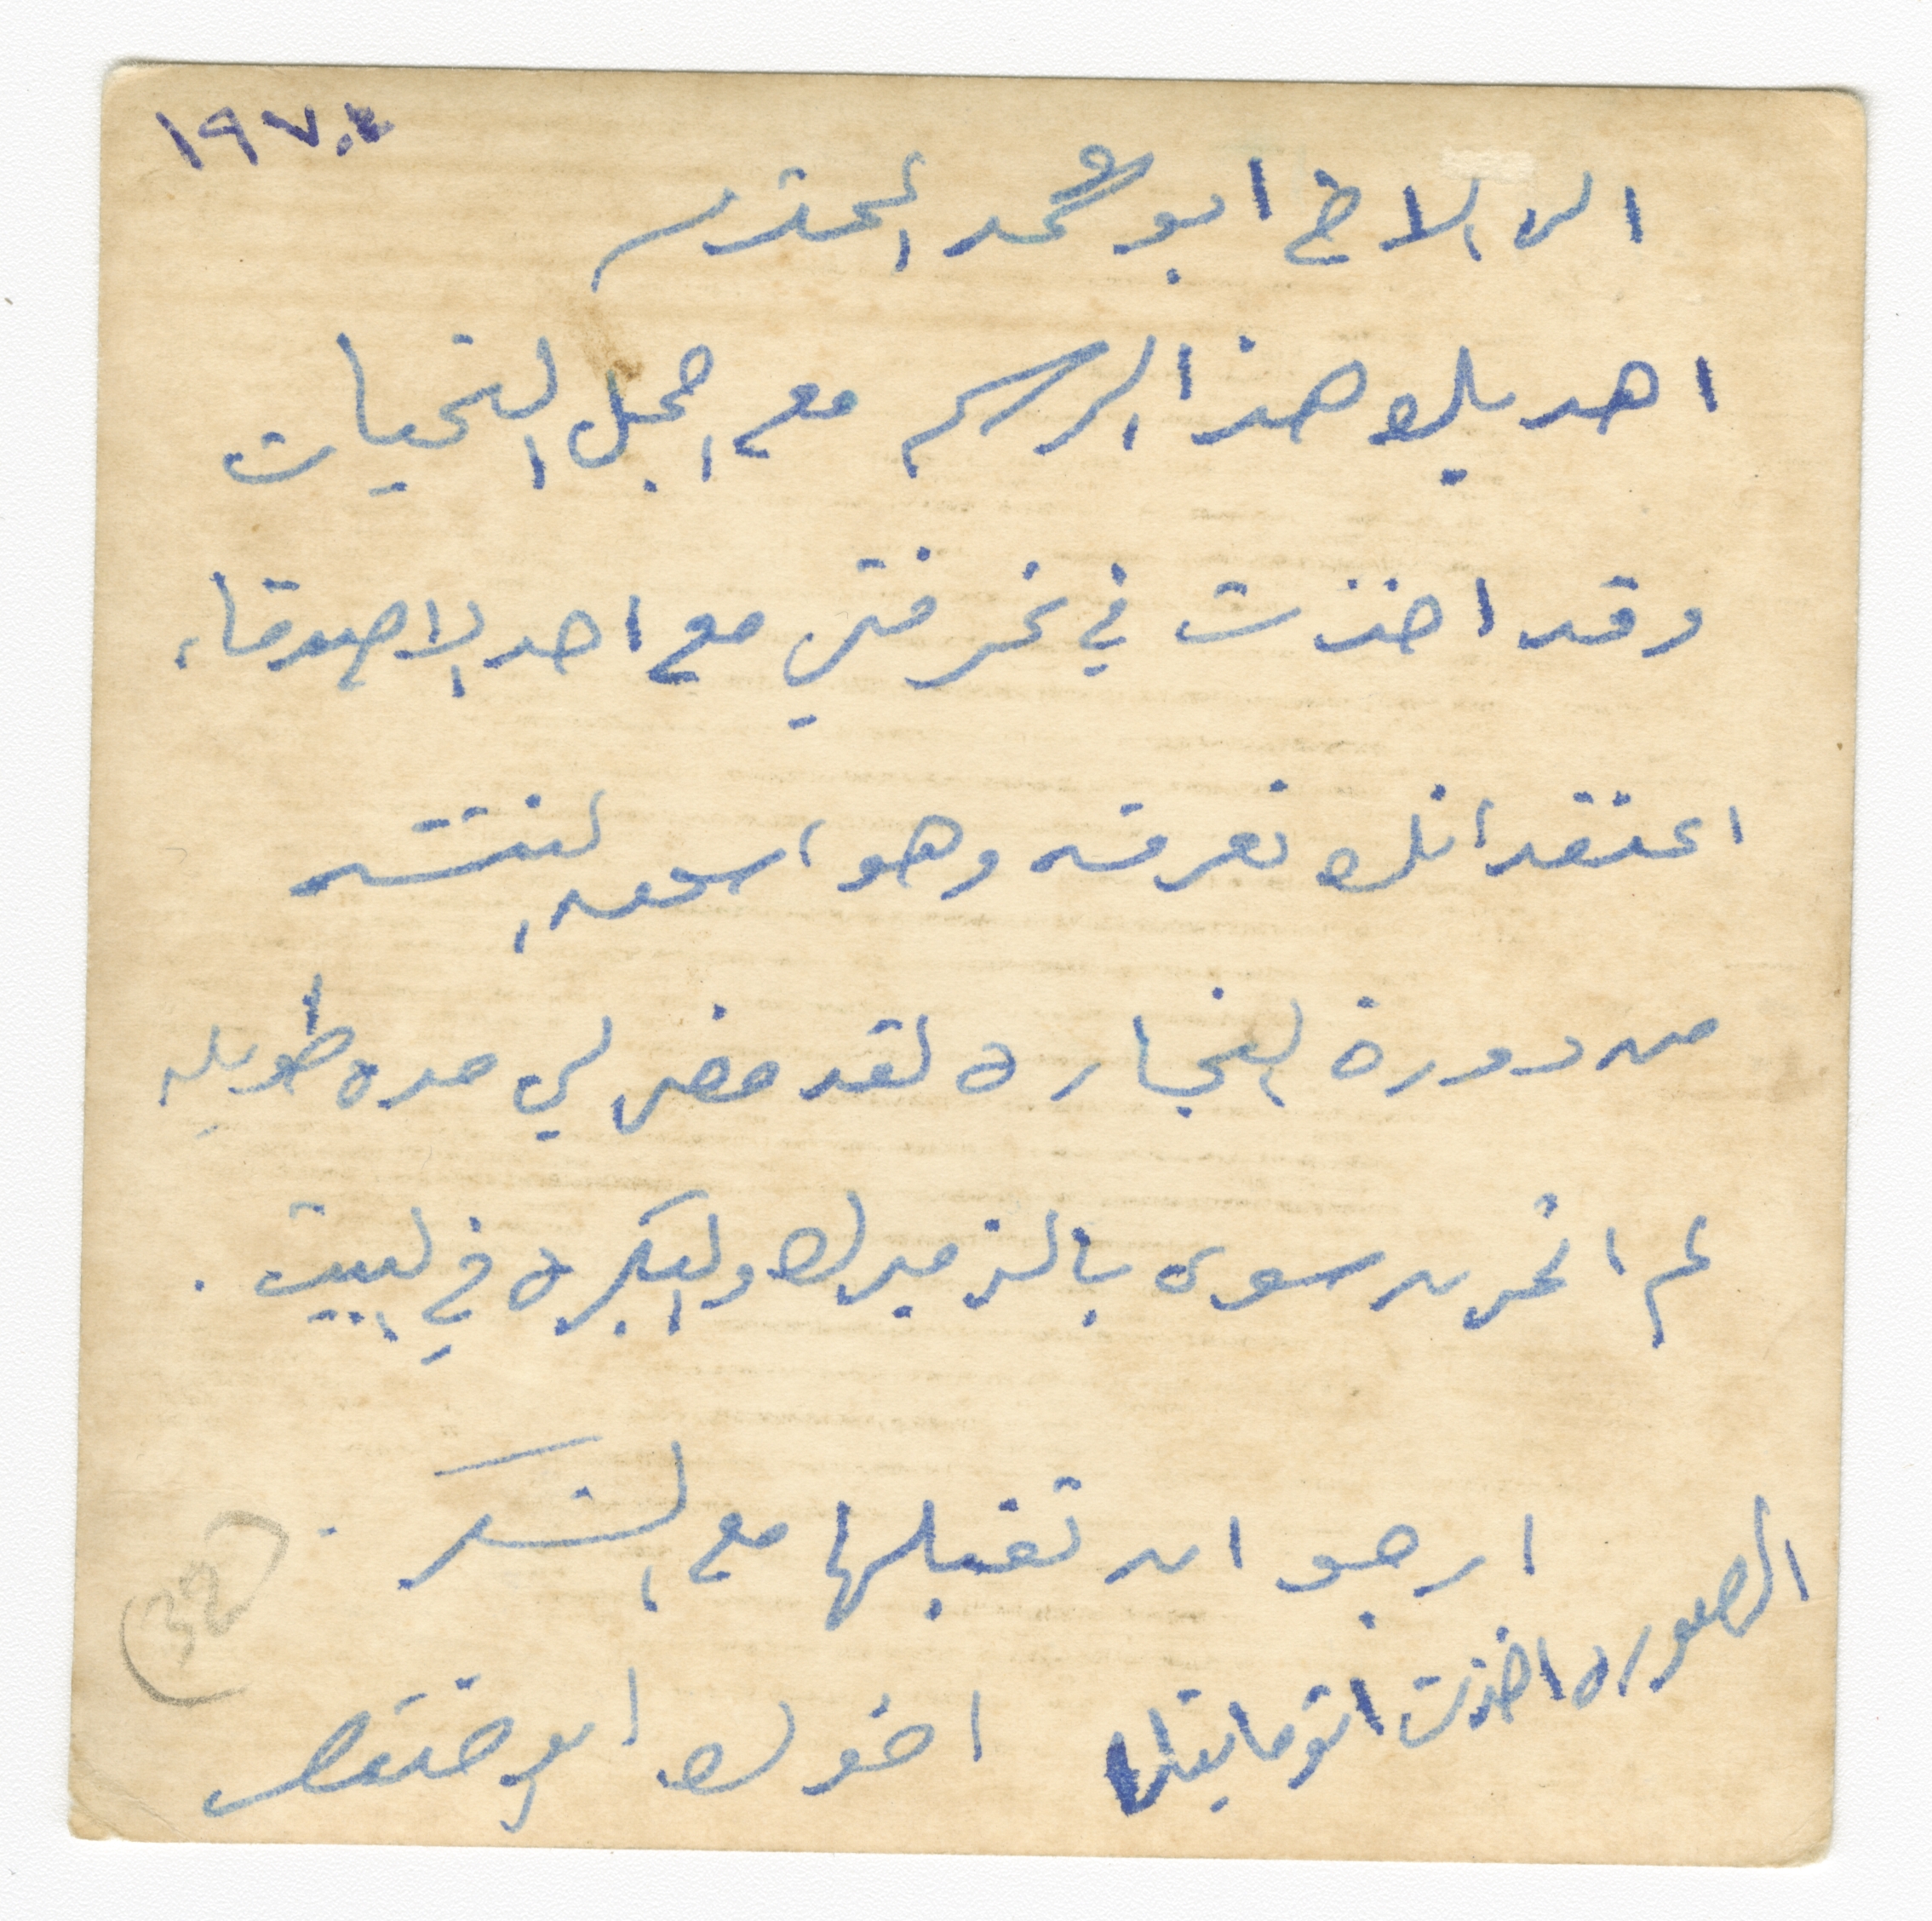 ١٩٧٠
الى الاخ ابو محمد المحترم
اهديك هذا الرسم مع اجمل التحيات
وقد اخذت في غرفتي مع احد الاصدقاء
اعتقد انك تعرفه وهو اسمه
من دورة النجاره لقد مضى لي مده طويله
لم اتمرن سوى بالزمبرك والبكره في البيت .
ارجو ان تقبلها مع الشكر .
الصوره اخذت اتوماتيك
اخوك ابو
32